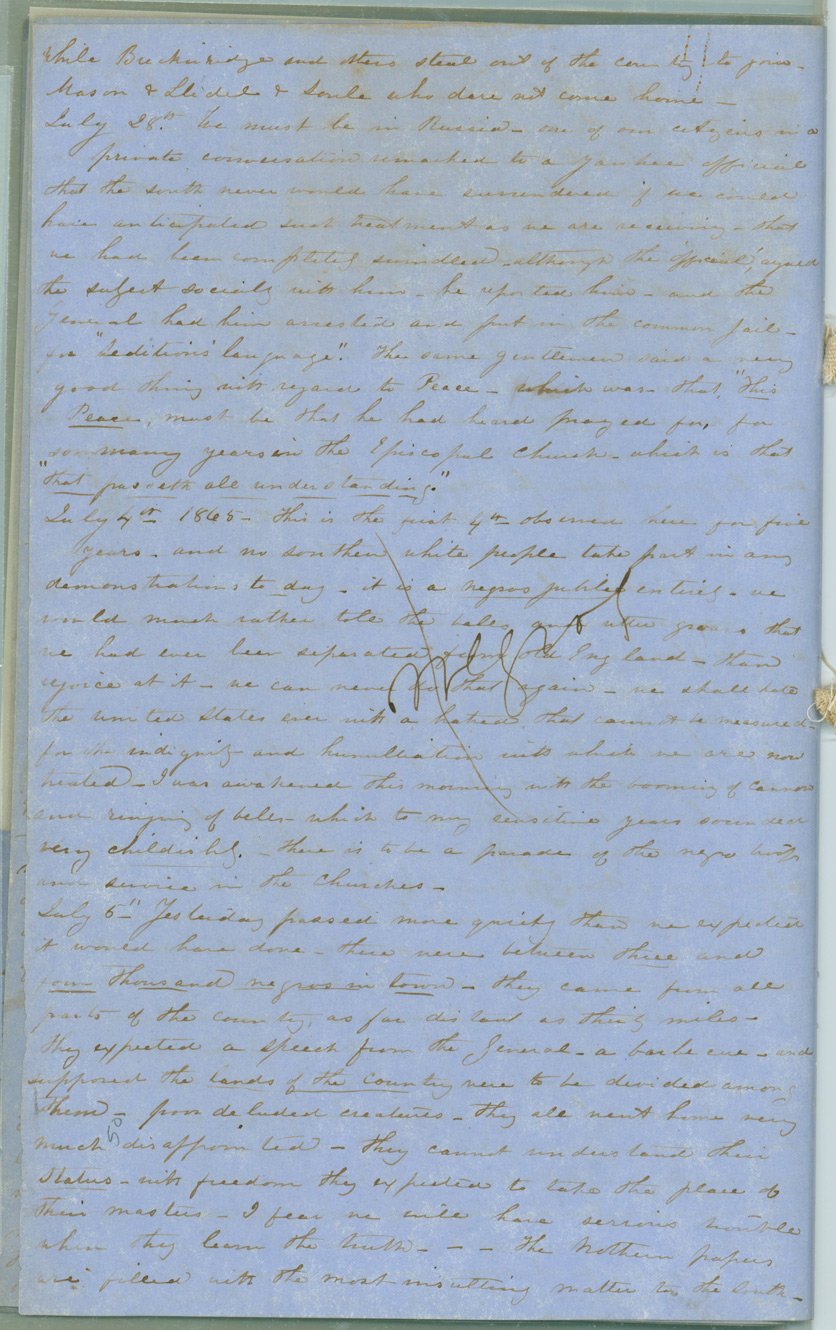 while Breckinridge and others steal out of the country to join -
Mason & Slidel & Soule who dare not come home -
July 28th. We must be in Russia - one of our citizens in a
private conversation remarked to a yankee official
that the south never would have surrendered if we could
have anticipated such treatment as we are receiving - that
we had been completely swindled - although the 'official', agreed
the subject socially with him - he reported him - and the
General had him arrested and put in the common jail -
for "Seditious language". The same gentleman said a very
good thing with regard to Peace - which was - that, "this
Peace, must be that he had heard prayed for, for
so many years in the Episcopal Church - which is that
"that passeth all understanding."
July 4th 1865 - This is the first 4th observed here for five
years - and no southern white people take part in any
demonstrations to day - it is a negros jubilee entirely - we
would much rather tole the bells and utter groans that
we had ever been separated from old England - than
rejoice at it - we can never do that again - we shall hate
the United States ever with a hatred, that cannot be measured -
for the indignity and humiliation with which we are now
treated - I was awakened this morning with the booming of cannon
and ringing of bells - which to my sensitive years sounded
very childishly. - there is to be a parade of the negro troops
and service in the Churches -
July 5th Yesterday passed more quietly than we expected
it would have done - there were between three and
four thousand negros in town - they came from all
parts of the country, as far distant as thirty miles -
they expected a speech from the General - a barbecue - and
supposed the lands of the country were to be divided among
them - poor deluded creatures - they all went home very
much disappointed - they cannot understand their
Status - with freedom they expected to take the place of
their masters - I fear we will have serious trouble
when they learn the truth - - - The Nothern papers
are filled with the most insulting matter to the South -
50